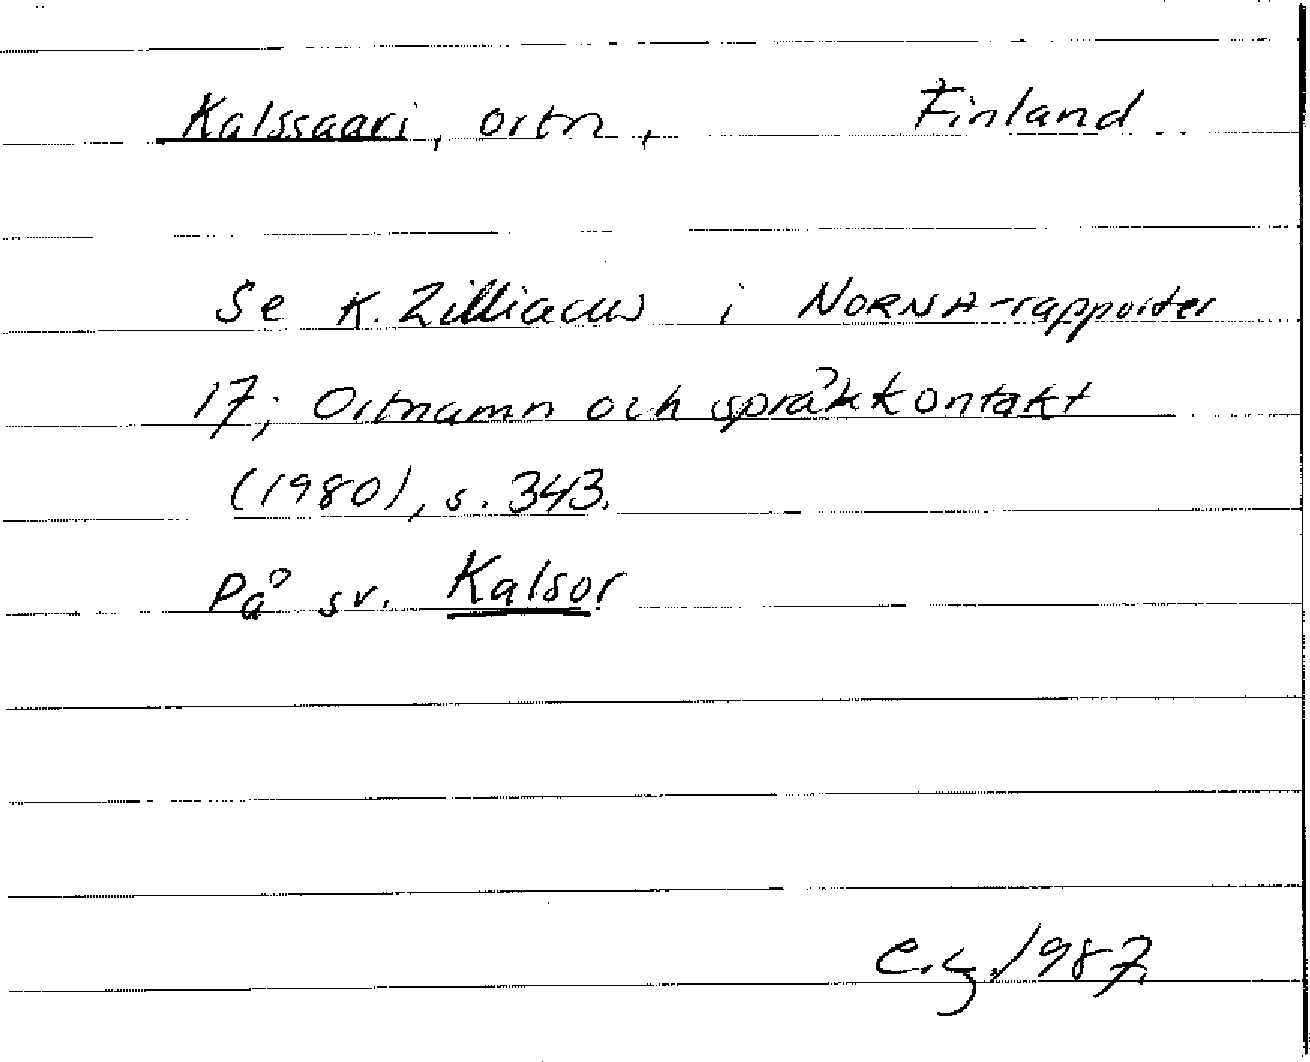 Kalssaari, ortn, Finland
Se K. Zilliacus i NORNA-rapporter
17; Ortnamn och språkkontakt
(1980), s. 343.
På sv. Kalsor
1987.